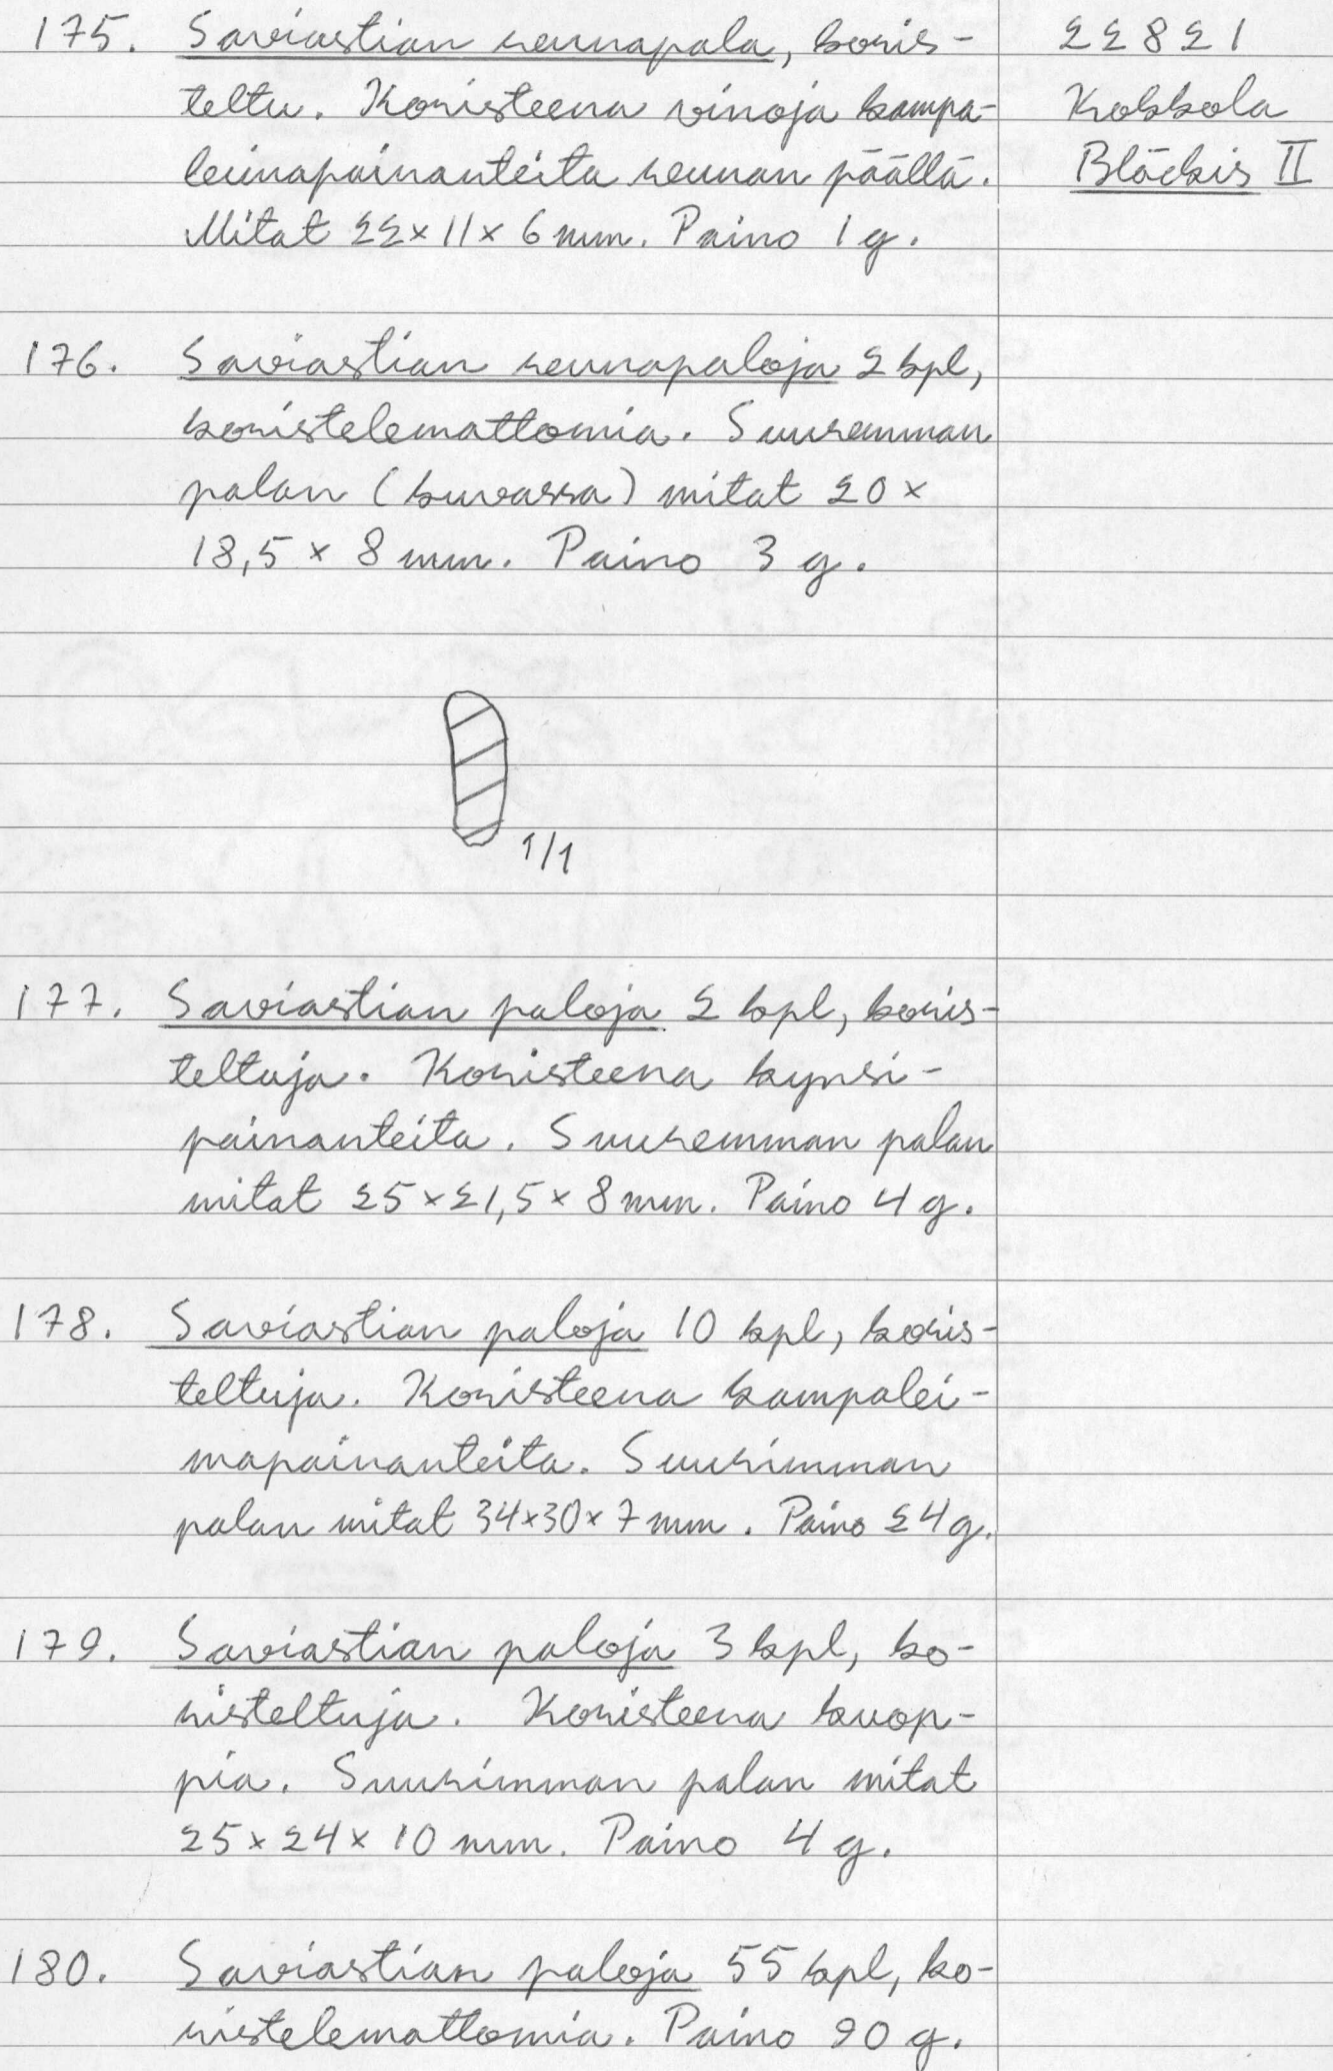 175. Saviastian reunapala, koris-
teltu. Koristeena vinoja kampa-
leimapainanteita reunan päällä.
Mitat 22×11×6 mm. Paino 1 g.
22821
Kokkola
Bläckis II
176. Saviastian reunapaloja 2 kpl,
koristelemattomia. Suuremman
palan (kuvassa) mitat 20×
18,5×8 mm. Paino 3 g.
1/1
177. Saviastian paloja 2 kpl, koris-
teltuja. Koristeena kynsi-
painanteita. Suuremman palan
mitat 25×21,5×8 mm. Paino 4 g.
178. Saviastian paloja 10 kpl, koris-
teltuja. Koristeena kampalei-
mapainanteita. Suurimman
palan mitat 34×30×7 mm. Paino 24 g.
179. Saviastian paloja 3 kpl, ko-
risteltuja. Koristeena kuop-
pia. Suurimman palan mitat
25×24×10 mm. Paino 4 g.
180. Saviastian paloja 55 kpl, ko-
ristelemattomia. Paino 90 g.